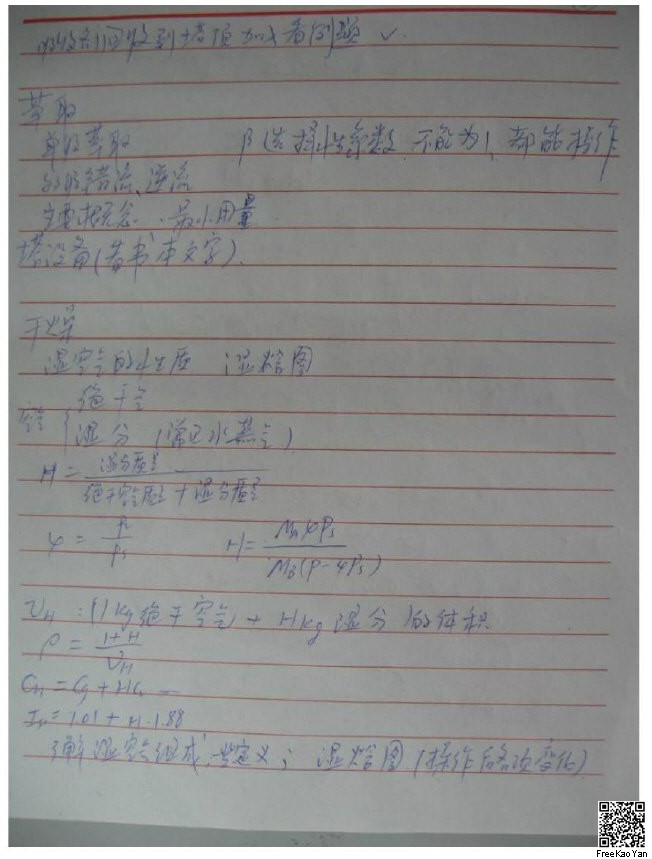 吸收剂回收到塔顶 加 看例题 ✓
萃取
单级萃取 β (选择性系数 不能为1, 都能操作
多级错流、逆流
主要概念、最小用量
塔设备(看书本文字).
干燥
湿空气的性质 湿焓图
空气 { 绝干气
湿分 (常见水蒸气)
H = 湿分质量 / 绝干空气质量 + 湿分质量
φ = P / Ps H = MAφPs / MB(P-φPs)
υH : (1kg绝干空气 + Hkg湿分)的体积
ρ = 1+H / υH
CH = Cg + HC
IH = 1.01 + H·1.88
了解湿空气组成,一些定义; 湿焓图 (操作后各项变化)
FreeKaoYan